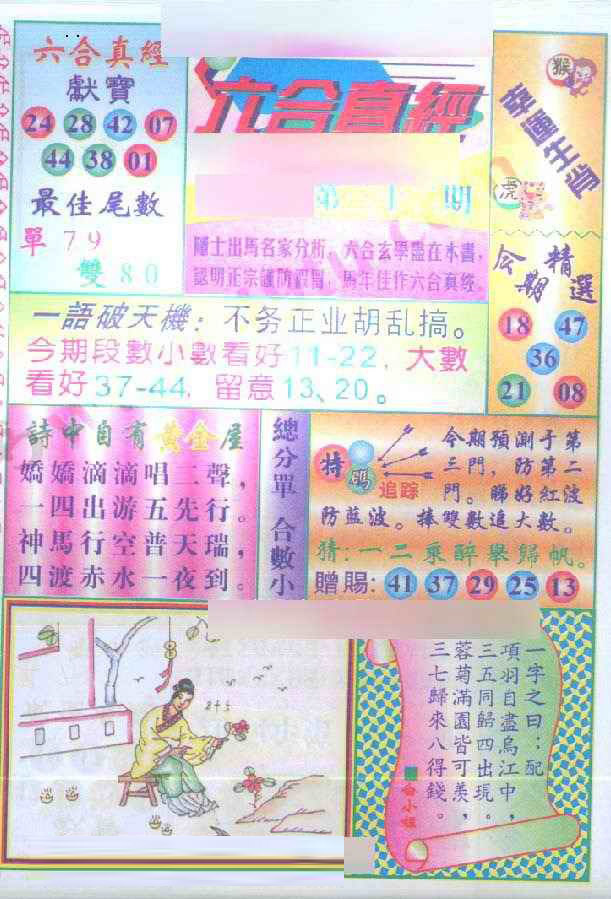 六合真經
獻寶
24 28 42 07
44 38 01
最佳尾數
單 7 9
雙 8 0
六合真經
第 期
隱士出馬名家分析，六合玄學盡在本書，
認明正宗謹防假冒，馬年佳作六合真經。
猴
幸運生肖
虎
今期精選
18 47
36
21 08
一語破天機：不务正业胡乱搞。
今期段數小數看好11-22，大數
看好37-44，留意13、20。
詩中自有黃金屋
嬌嬌滴滴唱二聲，
一四出游五先行。
神馬行空普天瑞，
四渡赤水一夜到。
總分單 合數小
特碼
追踪
今期預測于第
三門，防第二
門。睇好紅波
防藍波。捧雙數追大數。
猜：一二乘醉舉歸帆。
贈賜：41 37 29 25 13
一字之曰：配
項羽自盡烏江中，
三五同歸四出現。
蓉菊滿園皆可羨，
三七歸來八得錢。
白小姐